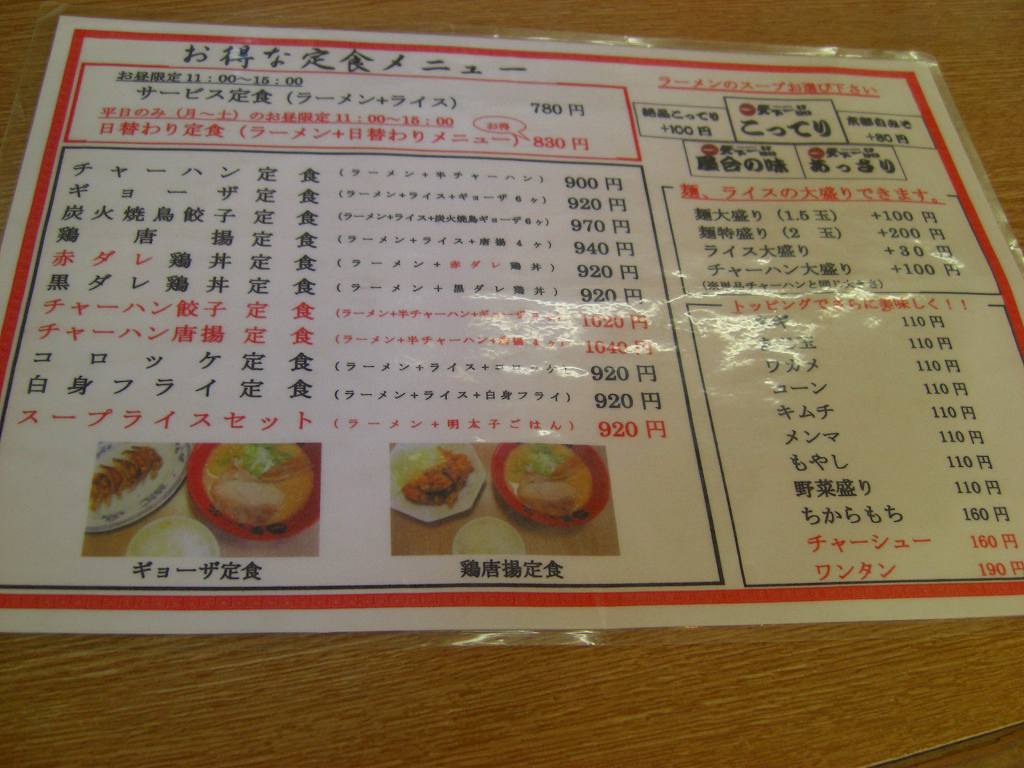 お得な定食メニュー
お昼限定11:00～15:00
サービス定食(ラーメン+ライス) 780円
平日のみ(月～土)のお昼限定11:00～15:00
お得
日替わり定食(ラーメン+日替わりメニュー) 830円
チャーハン定食(ラーメン+半チャーハン) 900円
ギョーザ定食(ラーメン+ライス+ギョーザ6ヶ) 920円
炭火焼鳥餃子定食(ラーメン+ライス+炭火焼鳥ギョーザ6ヶ) 970円
鶏唐揚定食(ラーメン+ライス+唐揚4ヶ) 940円
赤ダレ鶏丼定食(ラーメン+赤ダレ鶏丼) 920円
黒ダレ鶏丼定食(ラーメン+黒ダレ鶏丼) 920円
チャーハン餃子定食(ラーメン+半チャーハン+ギョーザ 1020円
チャーハン唐揚定食(ラーメン+半チャーハン+唐揚4ヶ) 1040円
コロッケ定食(ラーメン+ライス+コロッケ) 920円
白身フライ定食(ラーメン+ライス+白身フライ) 920円
スープライスセット(ラーメン+明太子ごはん) 920円
ギョーザ定食
鶏唐揚定食
ラーメンのスープお選び下さい
絶品こってり +100円
天下一品 こってり
京都白みそ +80円
天下一品 屋台の味
天下一品 あっさり
麺、ライスの大盛りできます。
麺大盛り(1.5玉) +100円
麺特盛り(2 玉) +200円
ライス大盛り +30円
チャーハン大盛り +100円
(※単品チャーハンと同じ大きさ)
トッピングでさらに美味しく!!
ネギ 110円
玉 110円
ワカメ 110円
コーン 110円
キムチ 110円
メンマ 110円
もやし 110円
野菜盛り 110円
ちからもち 160円
チャーシュー 160円
ワンタン 190円